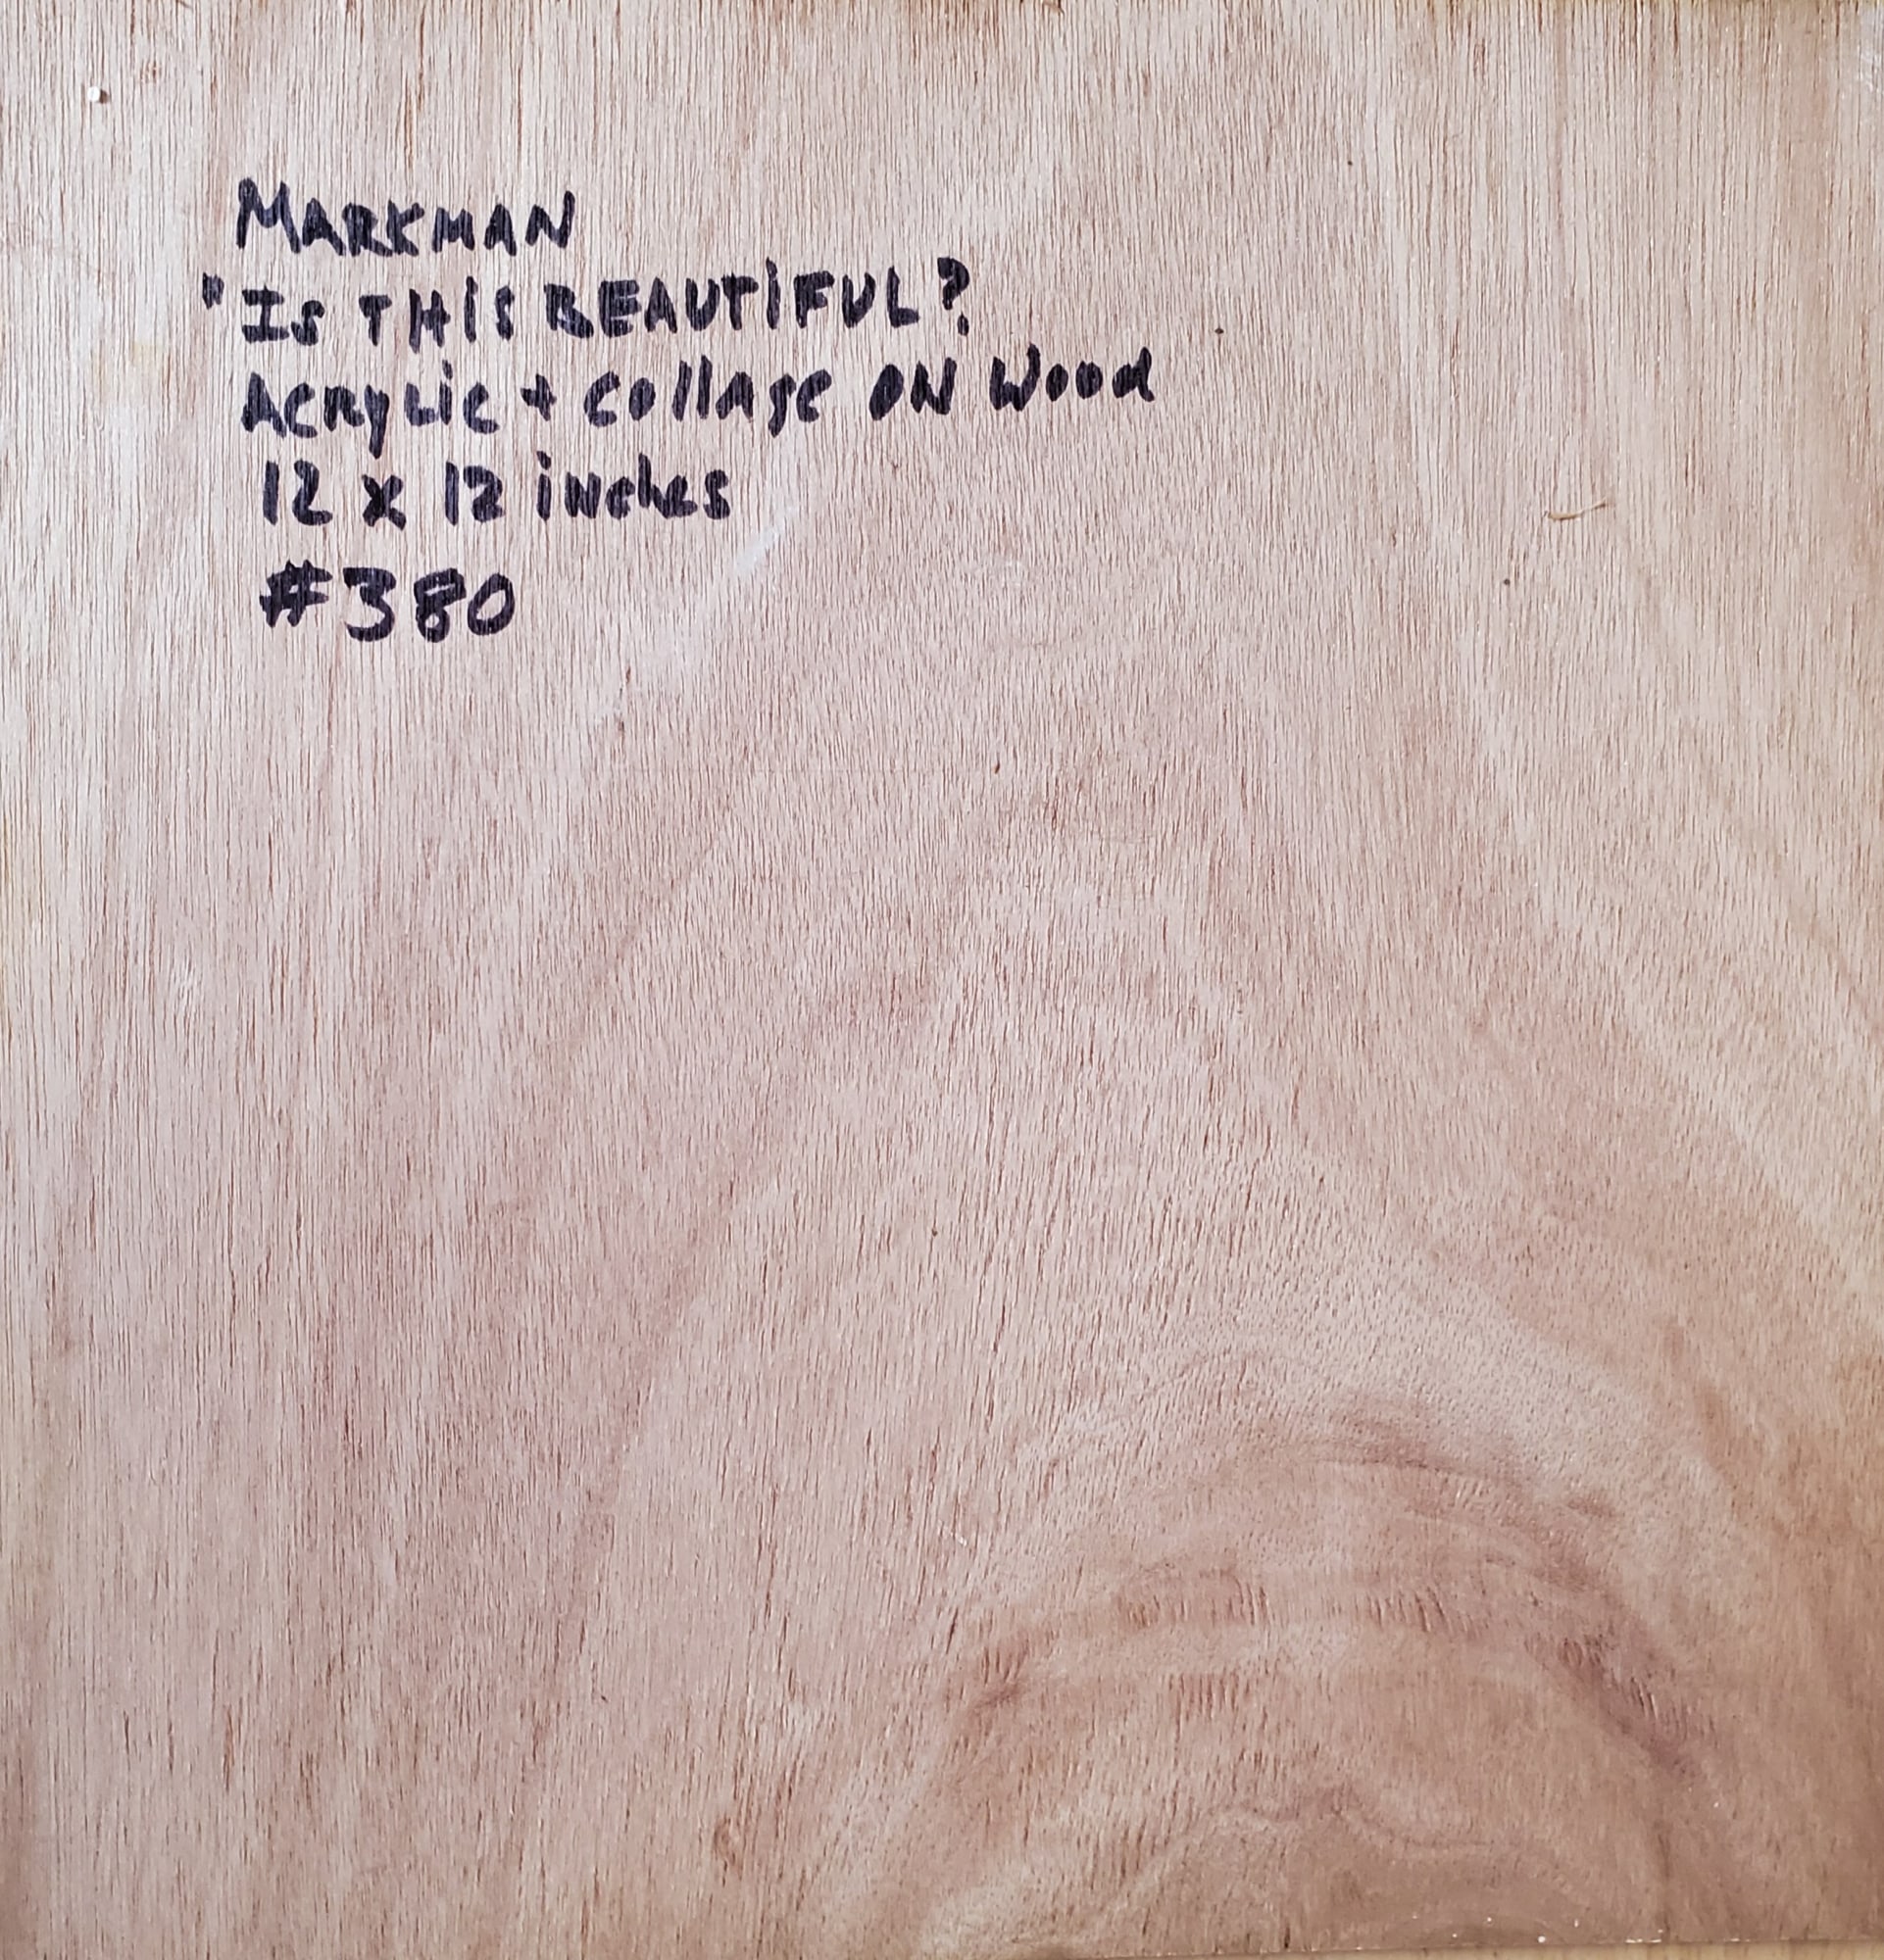 MARKMAN
"Is THis BEAUTiFUL?
Acrylic + collage ON Wood
12 x 12 inches
#380